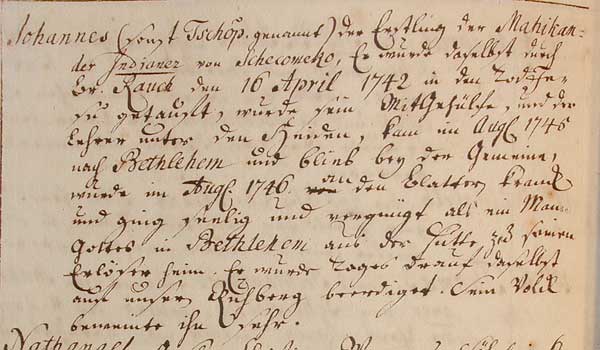 Johannes (sonst Tschöp. genannt) der Erstling der Mahikan-
der Indianer von Schecomeko, Er wurde daselbst durch
Br. Rauch den 16 April 1742 in den Tod Je-
su getauft, wurde sein Mitgehülfe, und der
Lehrer unter den Heiden, kam im Augl 1745
nach Bethlehem und blieb bey der Gemeine,
wurde im Augl. 1746. an den Blattern kranck
und ging seelig und vergnügt als ein Mann
Gottes in Bethlehem aus der Hütte zu seinem
Erlöser heim. Er wurde Tages drauf daselbst
auf unserm Ruhberg beerdiget. Sein Volck
beweinte ihn sehr.
Nathanael